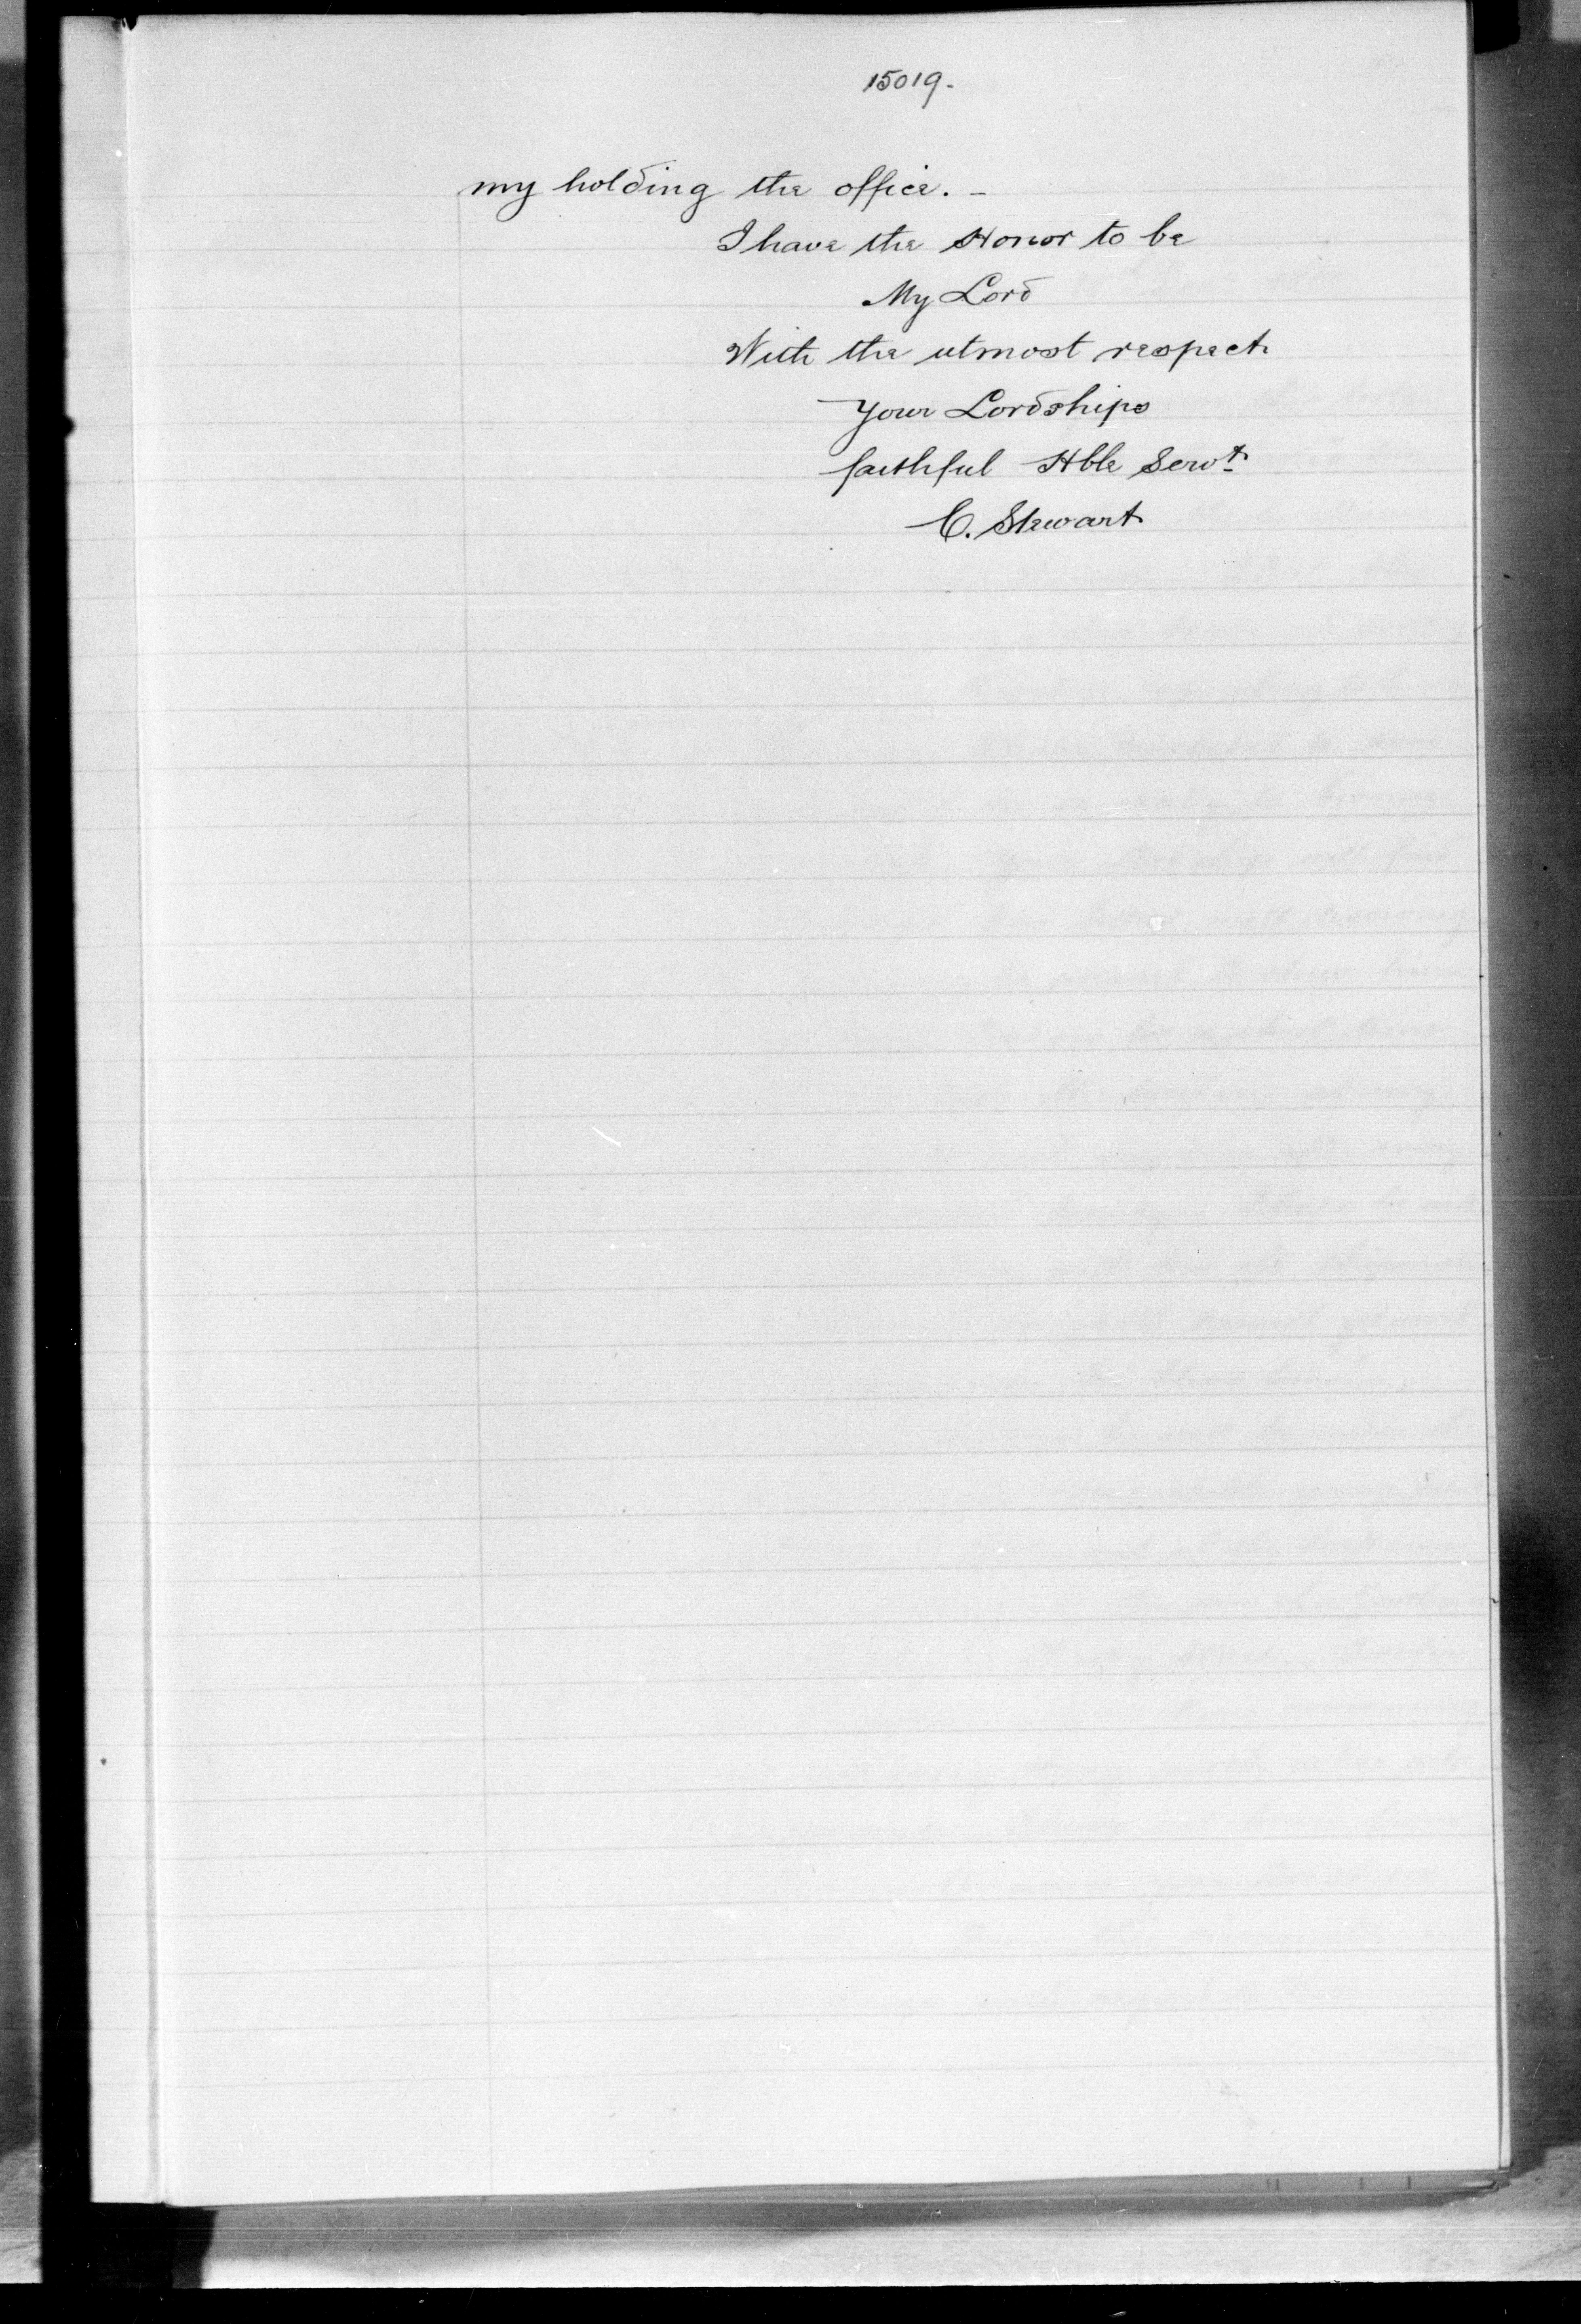 15019.
my holding the office. -
I have the Honor to be
My Lord
With the utmost respect
Your Lordships
faithful Hble Servt
C. Stewart